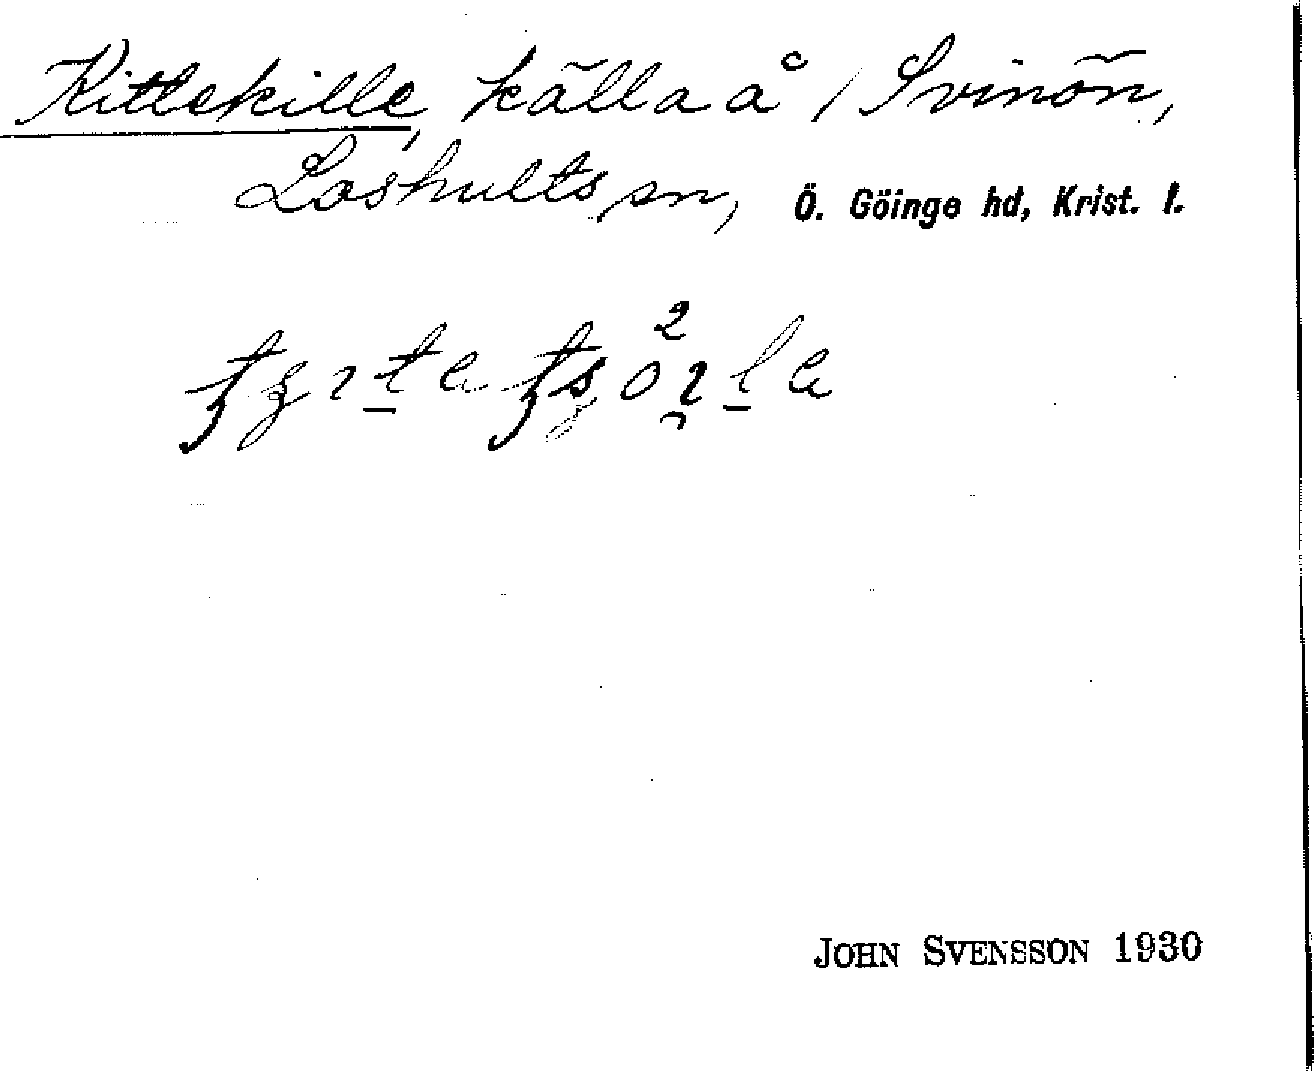 Kittekille, källa å / Svinön,
Loshults sn, Ö. Göinge hd, Krist. l.
JOHN SVENSSON 1930